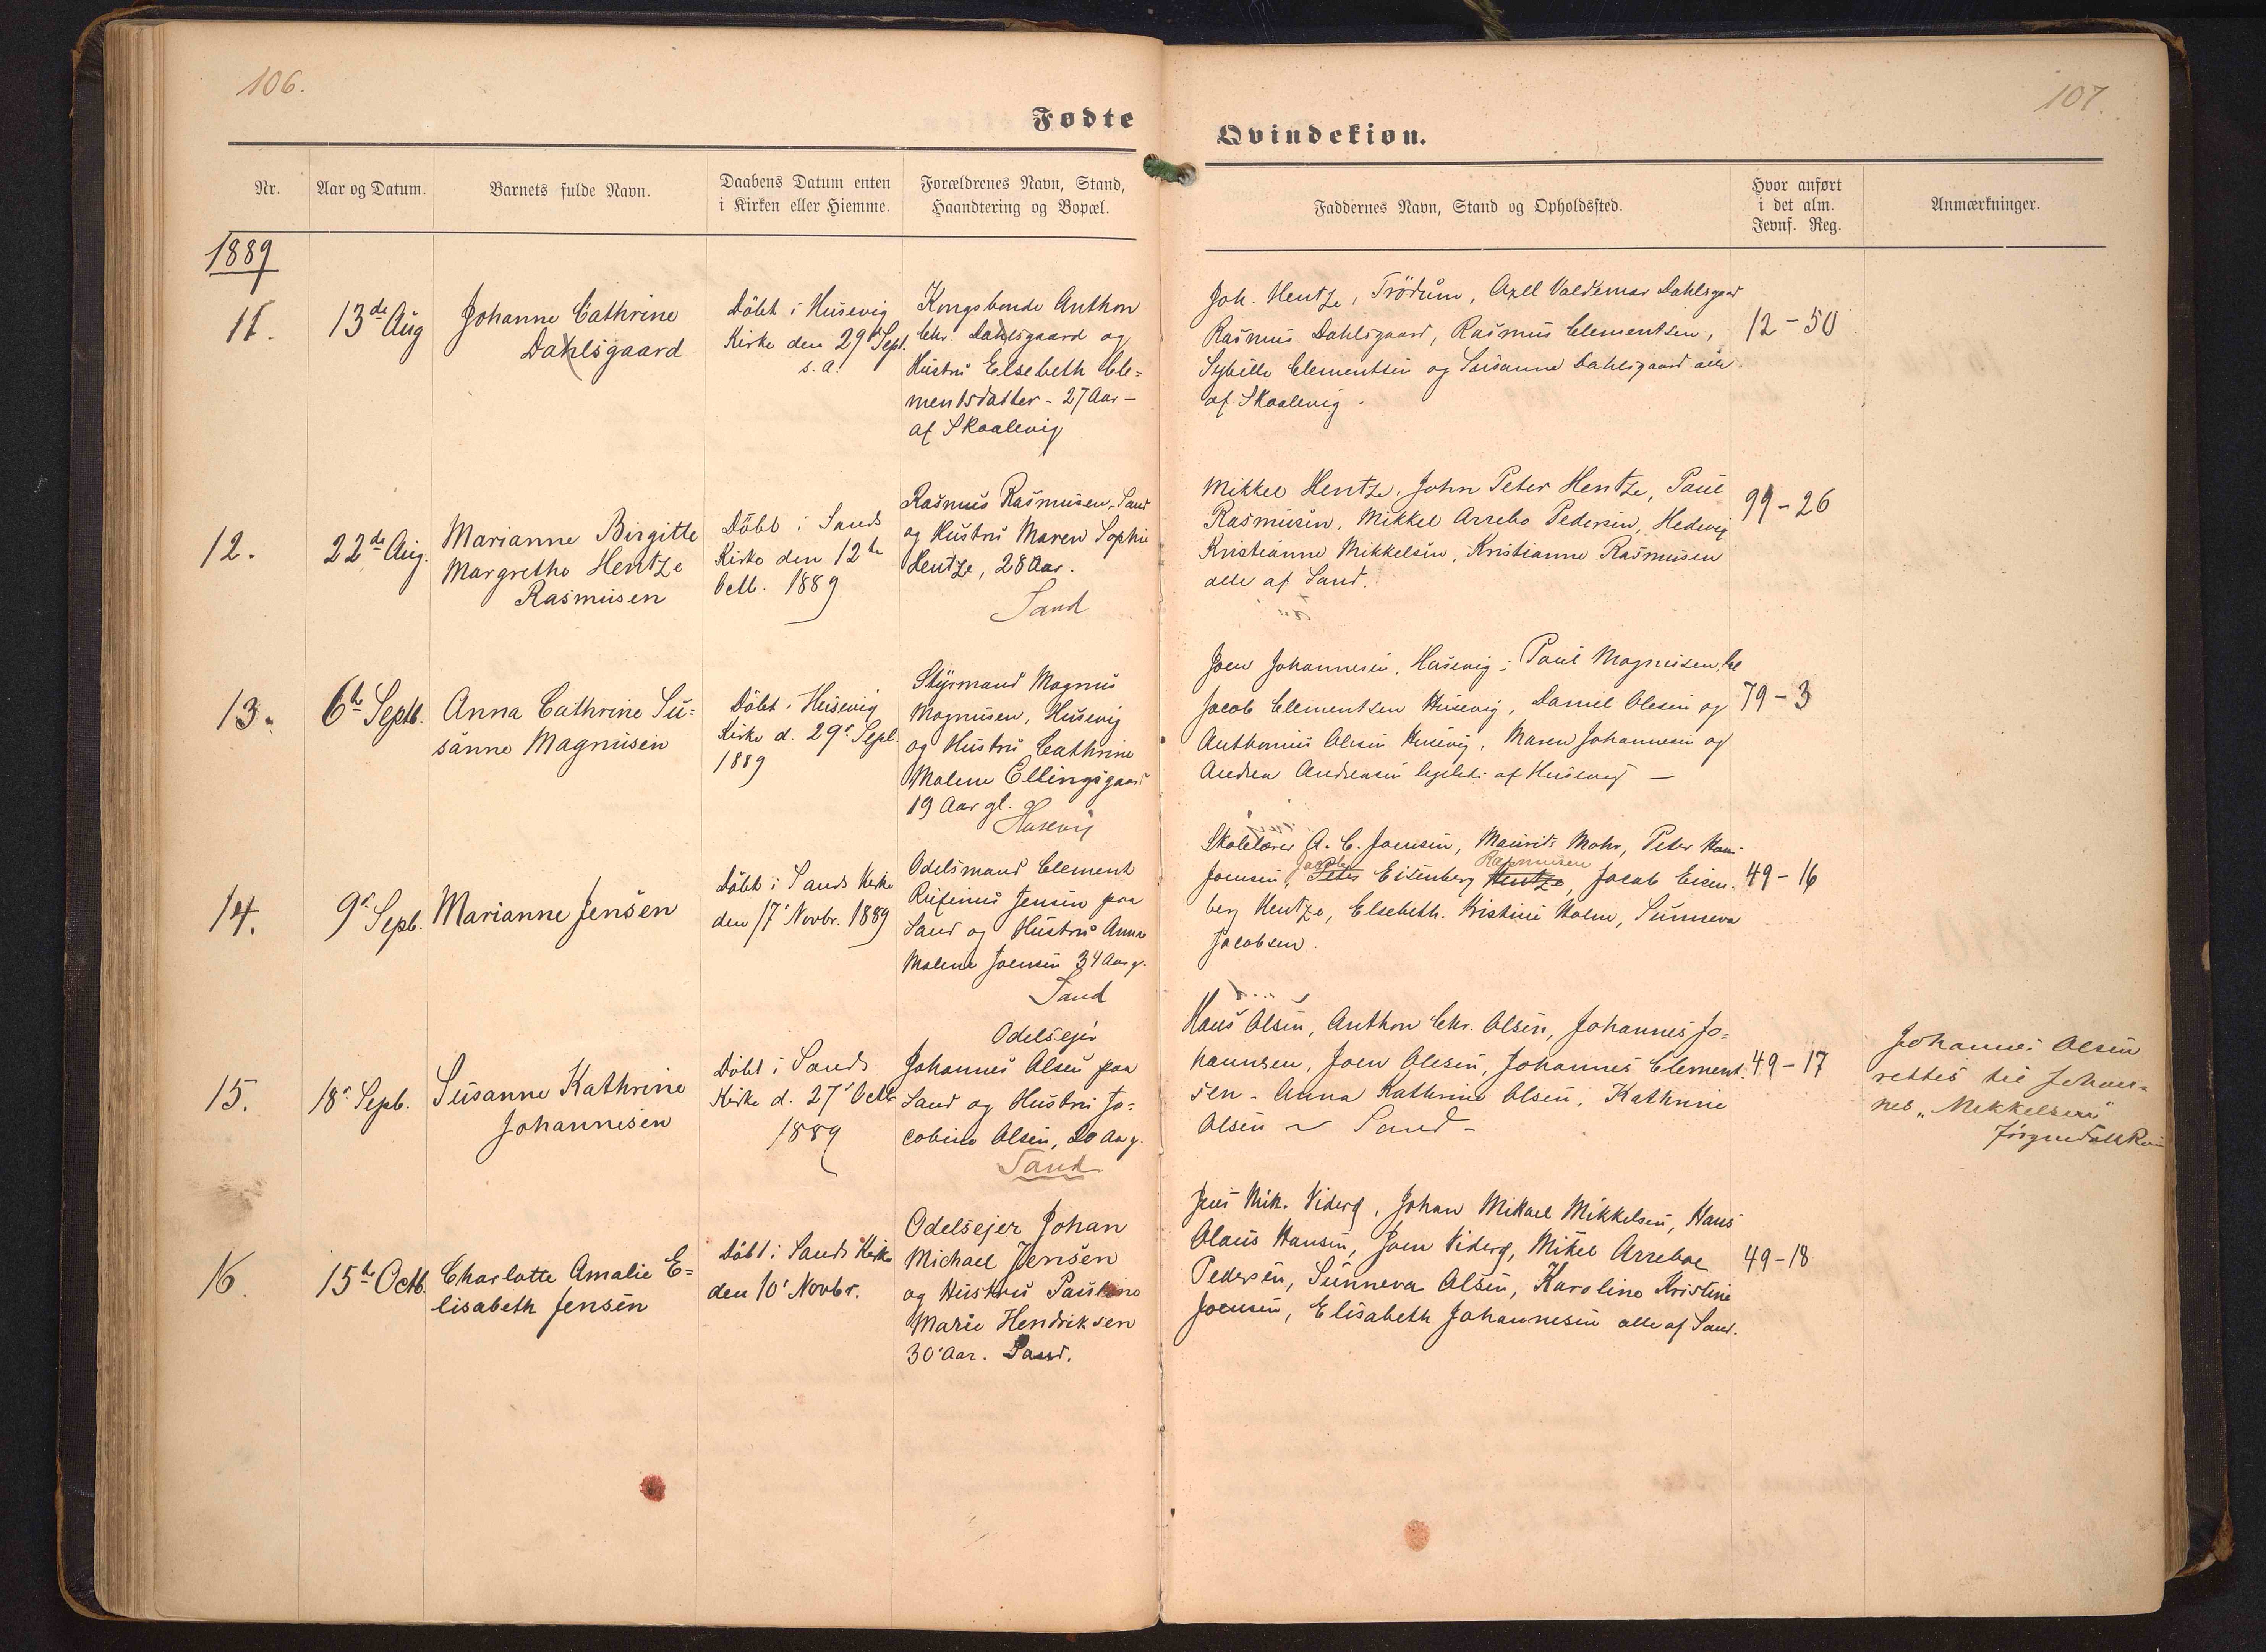 106.
107.
Fødte
Qvindekiøn.
Nr.
Aar og Datum.
Barnets fulde Navn.
Daabens Datum enten
i Kirken eller Hiemme.
Forældrenes Navn, Stand,
Haandtering og Bopæl.
Faddernes Navn, Stand og Opholdssted.
Hvor anført
i det alm.
Jevnf. Reg.
Anmærkninger.
1889
11.
13de Aug
Johanne Cathrine
Dahlsgaard
Döbt i Husevig
Kirke den 29' Sept.
s. a.
Kongsbonde Anthon
Chr. Dahlsgaard og
Hustru Elsebeth Cle=
mentsdatter - 27 Aar -
af Skaalevig
Joh. Hentze, Trödum, Axel Valdemar Dahlsgaard
Rasmus Dahlsgaard, Rasmus Clementsen,
Sybille Clementsen og Susanne Dahlsgaard alle
af Skaalevig.
12-50
12.
22de Aug.
Marianne Birgitte
Margrethe Hentze
Rasmusen
Döbt i Sands
Kirke den 12te
Octb. 1889
Rasmus Rasmusen, Sand
og Hustru Maren Sophie
Hentze, 28 Aar.
Sand
Mikkel Hentze, John Peter Hentze, Paul
Rasmusen, Mikkel Arrebo Pedersen, Hedevig
Kristianne Mikkelsen, Kristianne Rasmusen
alle af Sand.
99-26
13.
6te Septb.
Anna Cathrine Su=
sanne Magnusen
Döbt i Husevig
Kirke d. 29' Sept.
1889
Styrmand Magnus
Magnusen, Husevig
og Hustru Cathrine
Malene Ellingsgaard
19 Aar gl.
Husevig
Joen Johannesen, Husevig; Paul Magnusen,
Jacob Clementsen Husevig, Daniel Olesen og
Anthonius Olesen Husevig, Maren Johannesen og
Andrea Andreasen af Husevig -
79-3
14.
9' Sepb.
Marianne Jensen
Döbt i Sands Kirke
den 17' Novbr. 1889
Odelsmand Clement
Rufinus Jensen paa
Sand og Hustru Anna
Malene Joensen 34 Aar g.
Sand
Skolelærer A. C. Joensen, Maurits Mohr, Peter Hans
Jacob Rasmusen
Joensen, Peter Eisenberg Hentze, Jacob Eisen-
berg Hentze, Elsebeth Kristine Holm, Sunneva
Jacobsen.
49-16
15.
18' Sepb.
Susanne Kathrine
Johannesen
Döbt i Sands
Kirke d. 27' Octb
1889
Odelsejer
Johannes Olsen paa
Sand og Hustru Ja=
cobine Olsen, 20 Aar g.
Sand
Hans Olsen, Anthon Chr. Olsen, Johannes Jo=
hannsen, Joen Olesen, Johannes Clement-
sen - Anna Kathrine Olsen, Kathrine
Olsen ~ Sand -
49-17
Johannes Olsen
rettes til Johan=
nes "Mikkelsen"
16.
15te Octb.
Charlotte Amalie E=
lisabeth Jensen
Döbt i Sands Kirke
den 10' Novbr.
Odelsejer Johan
Michael Jensen
og Hustru Pauline
Marie Hendriksen
30 Aar. Sand.
Jens Mik. Viderø, Johan Mikael Mikkelsen, Hans
Olaus Hansen, Joen Viderø, Mikel Arreboe
Pedersen, Sunneva Olsen, Karoline Kristine
Joensen, Elisabeth Johannesen alle af Sand.
49-18